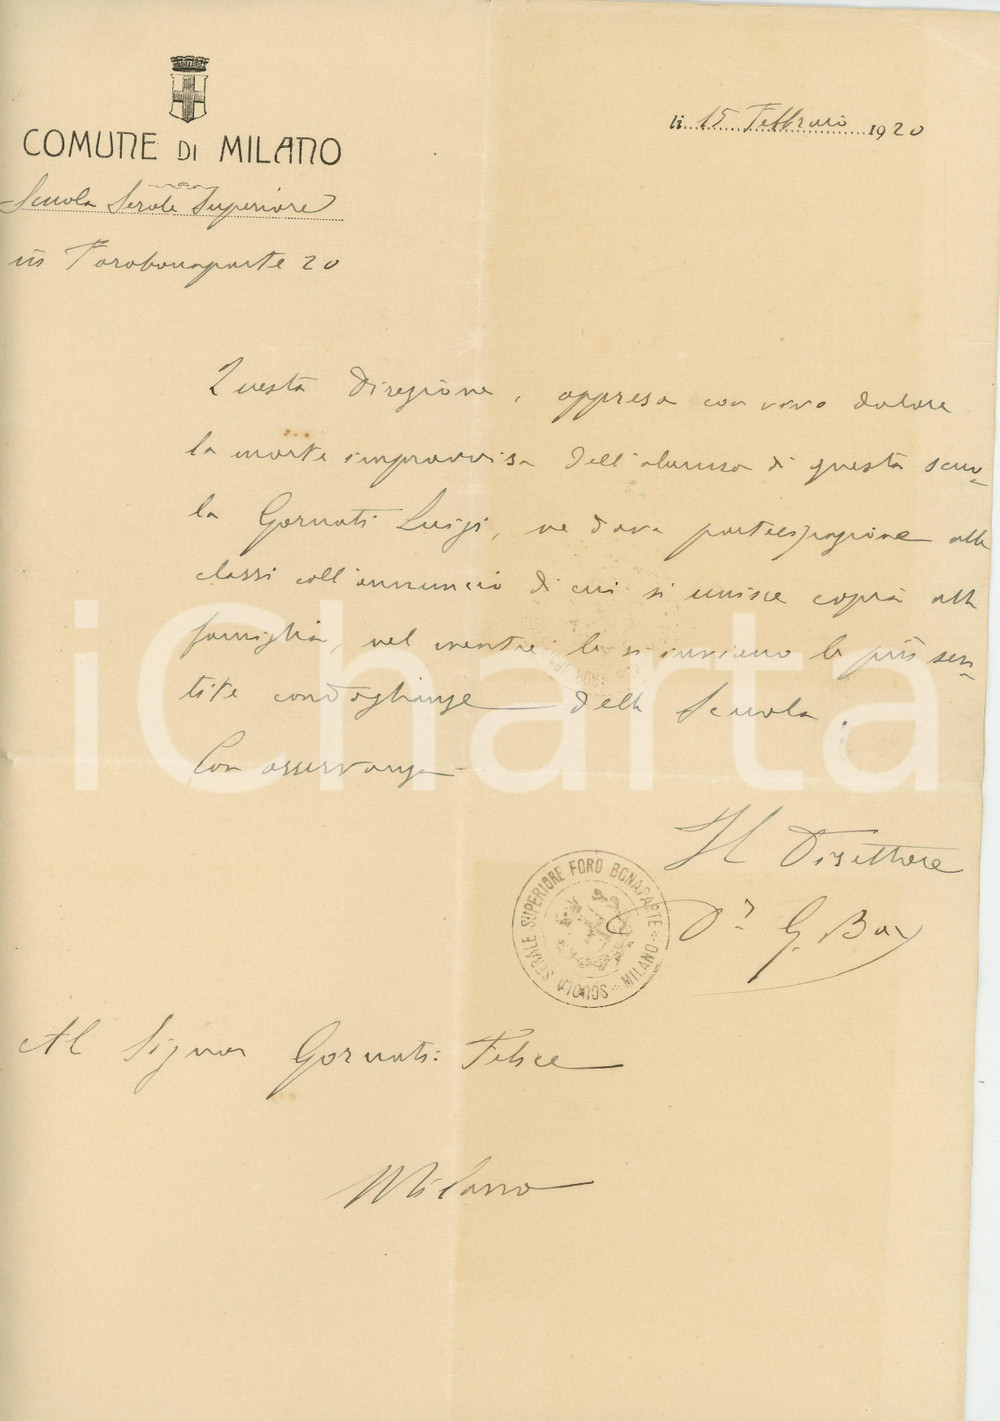 COMUNE DI MILANO
li 15 Febbraio 1920
Scuola Serale Superiore
in Forobonaparte 20
Questa Direzione, appresa con vivo dolore
la morte improvvisa dell'alunno di questa scuo-
la Gornati Luigi, ne dava partecipazione alle
classi coll'annuncio di cui si unisce copia alla
famiglia, nel mentre le si inviano le più sen-
tite condoglianze della Scuola.
Con osservanza
Il Direttore
Dr G. Bay
SCUOLA SERALE SUPERIORE FORO BONAPARTE - MILANO -
Al Signor Gornati Felice
Milano
iCharta